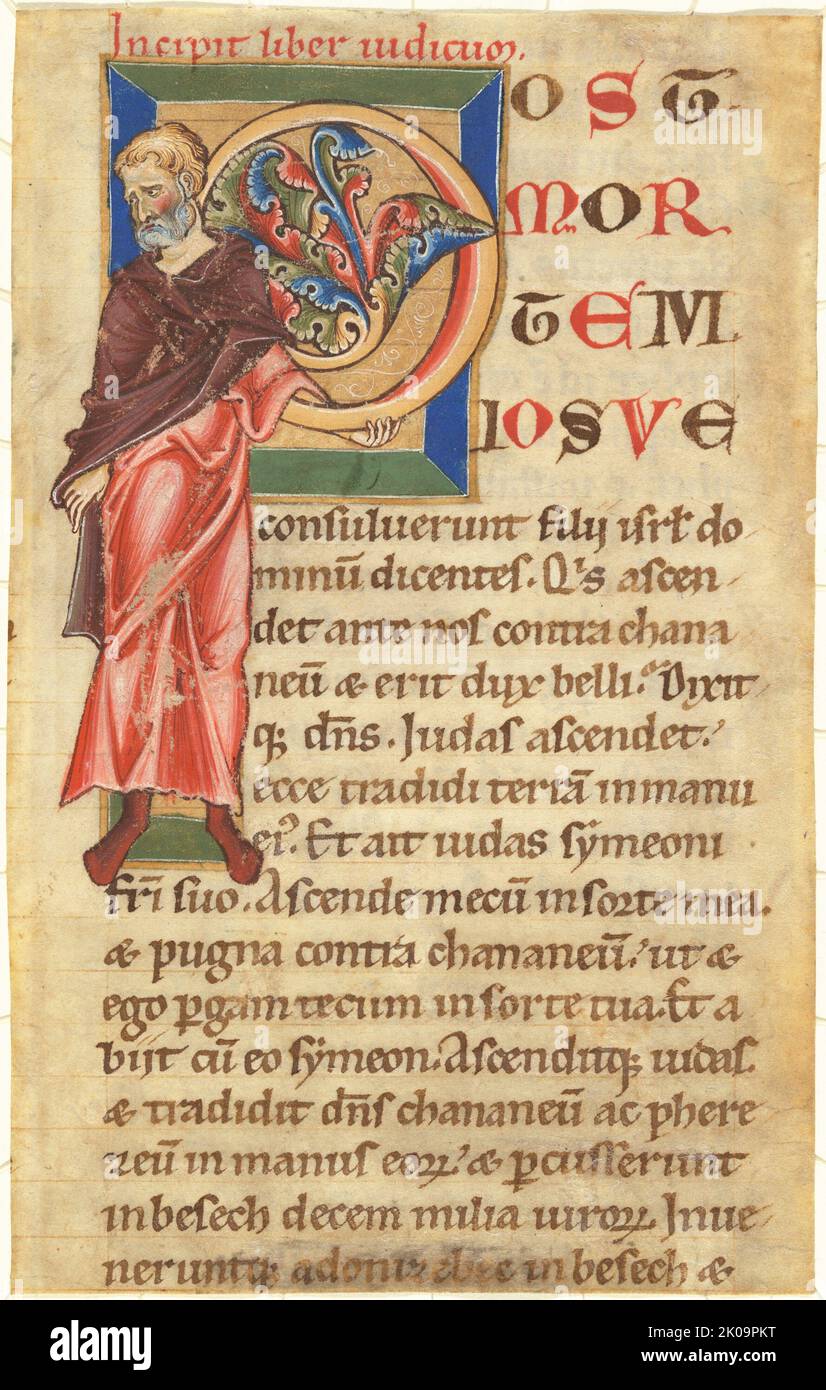 Incipit liber iudicum.
POST
MOR
TEM
IOSVE
consuluerunt filij isrl̄ do
minū dicentes. Qͥs ascen-
det ante nos contra chana
neū & erit dux belli. Dixit
q; dn̄s. Iudas ascendet.
ecce tradidi terrā in manu
eiꝰ. Et ait iudas sẏmeoni
fr̄i suo. Ascende mecū in sorte mea.
& pugna contra chananeū. ut &
ego ꝑgam tecum in sorte tua. Et a
biit cū eo sẏmeon. Ascenditq; iudas.
& tradidit dn̄s chananeū ac phere
zeū in manus eoꝝ. & ꝑcusserunt
in besech decem milia uiroꝝ. Inue-
neruntq; adonibezec in besech &
alamy
Image ID: 2K09PKT
www.alamy.com